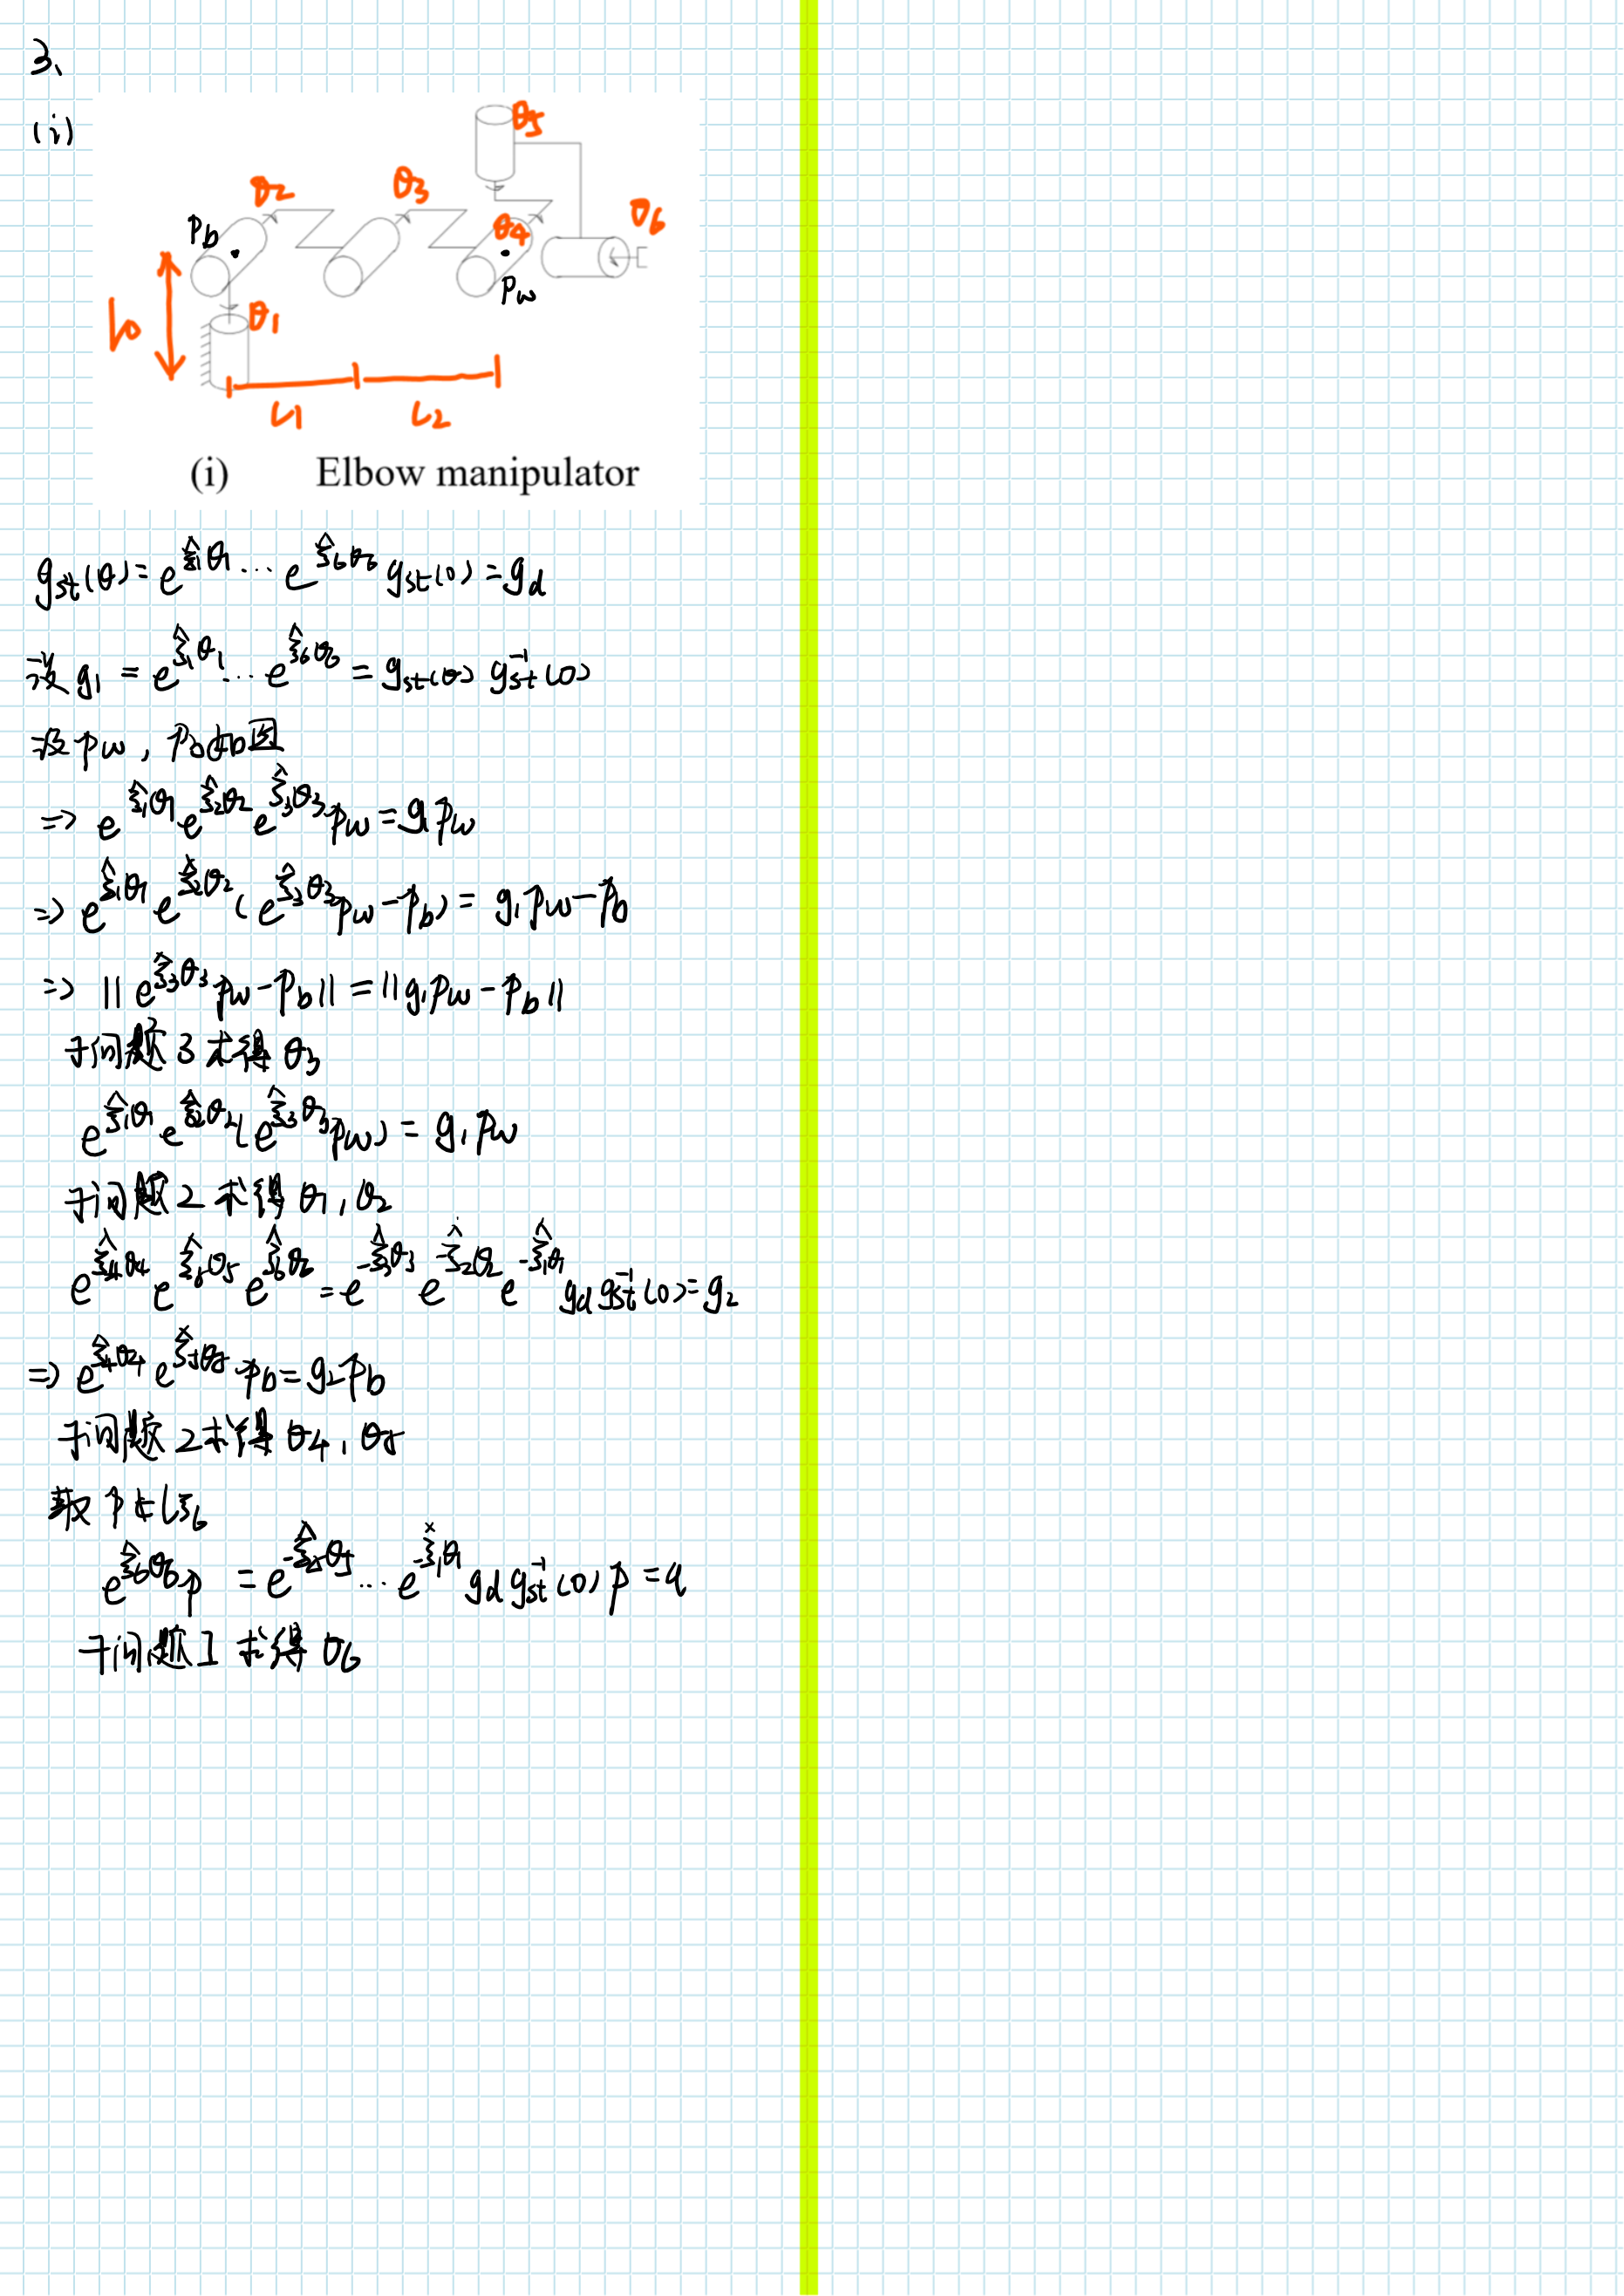 3、
(i)
θ5
θ2
θ3
θ6
Pb
θ4
Pw
l0
θ1
L1
L2
(i) Elbow manipulator
g_st(θ) = e^{ξ̂1θ1} ⋯ e^{ξ̂6θ6} g_st(0) = g_d
设 g1 = e^{ξ̂1θ1} ⋯ e^{ξ̂6θ6} = g_st(θ) g_st^{-1}(0)
设 Pw, Pb如图
⇒ e^{ξ̂1θ1} e^{ξ̂2θ2} e^{ξ̂3θ3} Pw = g1 Pw
⇒ e^{ξ̂1θ1} e^{ξ̂2θ2} (e^{ξ̂3θ3} Pw - Pb) = g1 Pw - Pb
⇒ ||e^{ξ̂3θ3} Pw - Pb|| = ||g1 Pw - Pb||
子问题3求得 θ3
e^{ξ̂1θ1} e^{ξ̂2θ2} (e^{ξ̂3θ3} Pw) = g1 Pw
子问题2求得 θ1, θ2
e^{ξ̂4θ4} e^{ξ̂5θ5} e^{ξ̂6θ6} = e^{-ξ̂3θ3} e^{-ξ̂2θ2} e^{-ξ̂1θ1} g_d g_st^{-1}(0) = g2
⇒ e^{ξ̂4θ4} e^{ξ̂5θ5} Pb = g2 Pb
子问题2求得 θ4, θ5
取 P ∉ Lξ6
e^{ξ̂6θ6} P = e^{-ξ̂5θ5} ⋯ e^{-ξ̂1θ1} g_d g_st^{-1}(0) P = q
子问题1求得 θ6